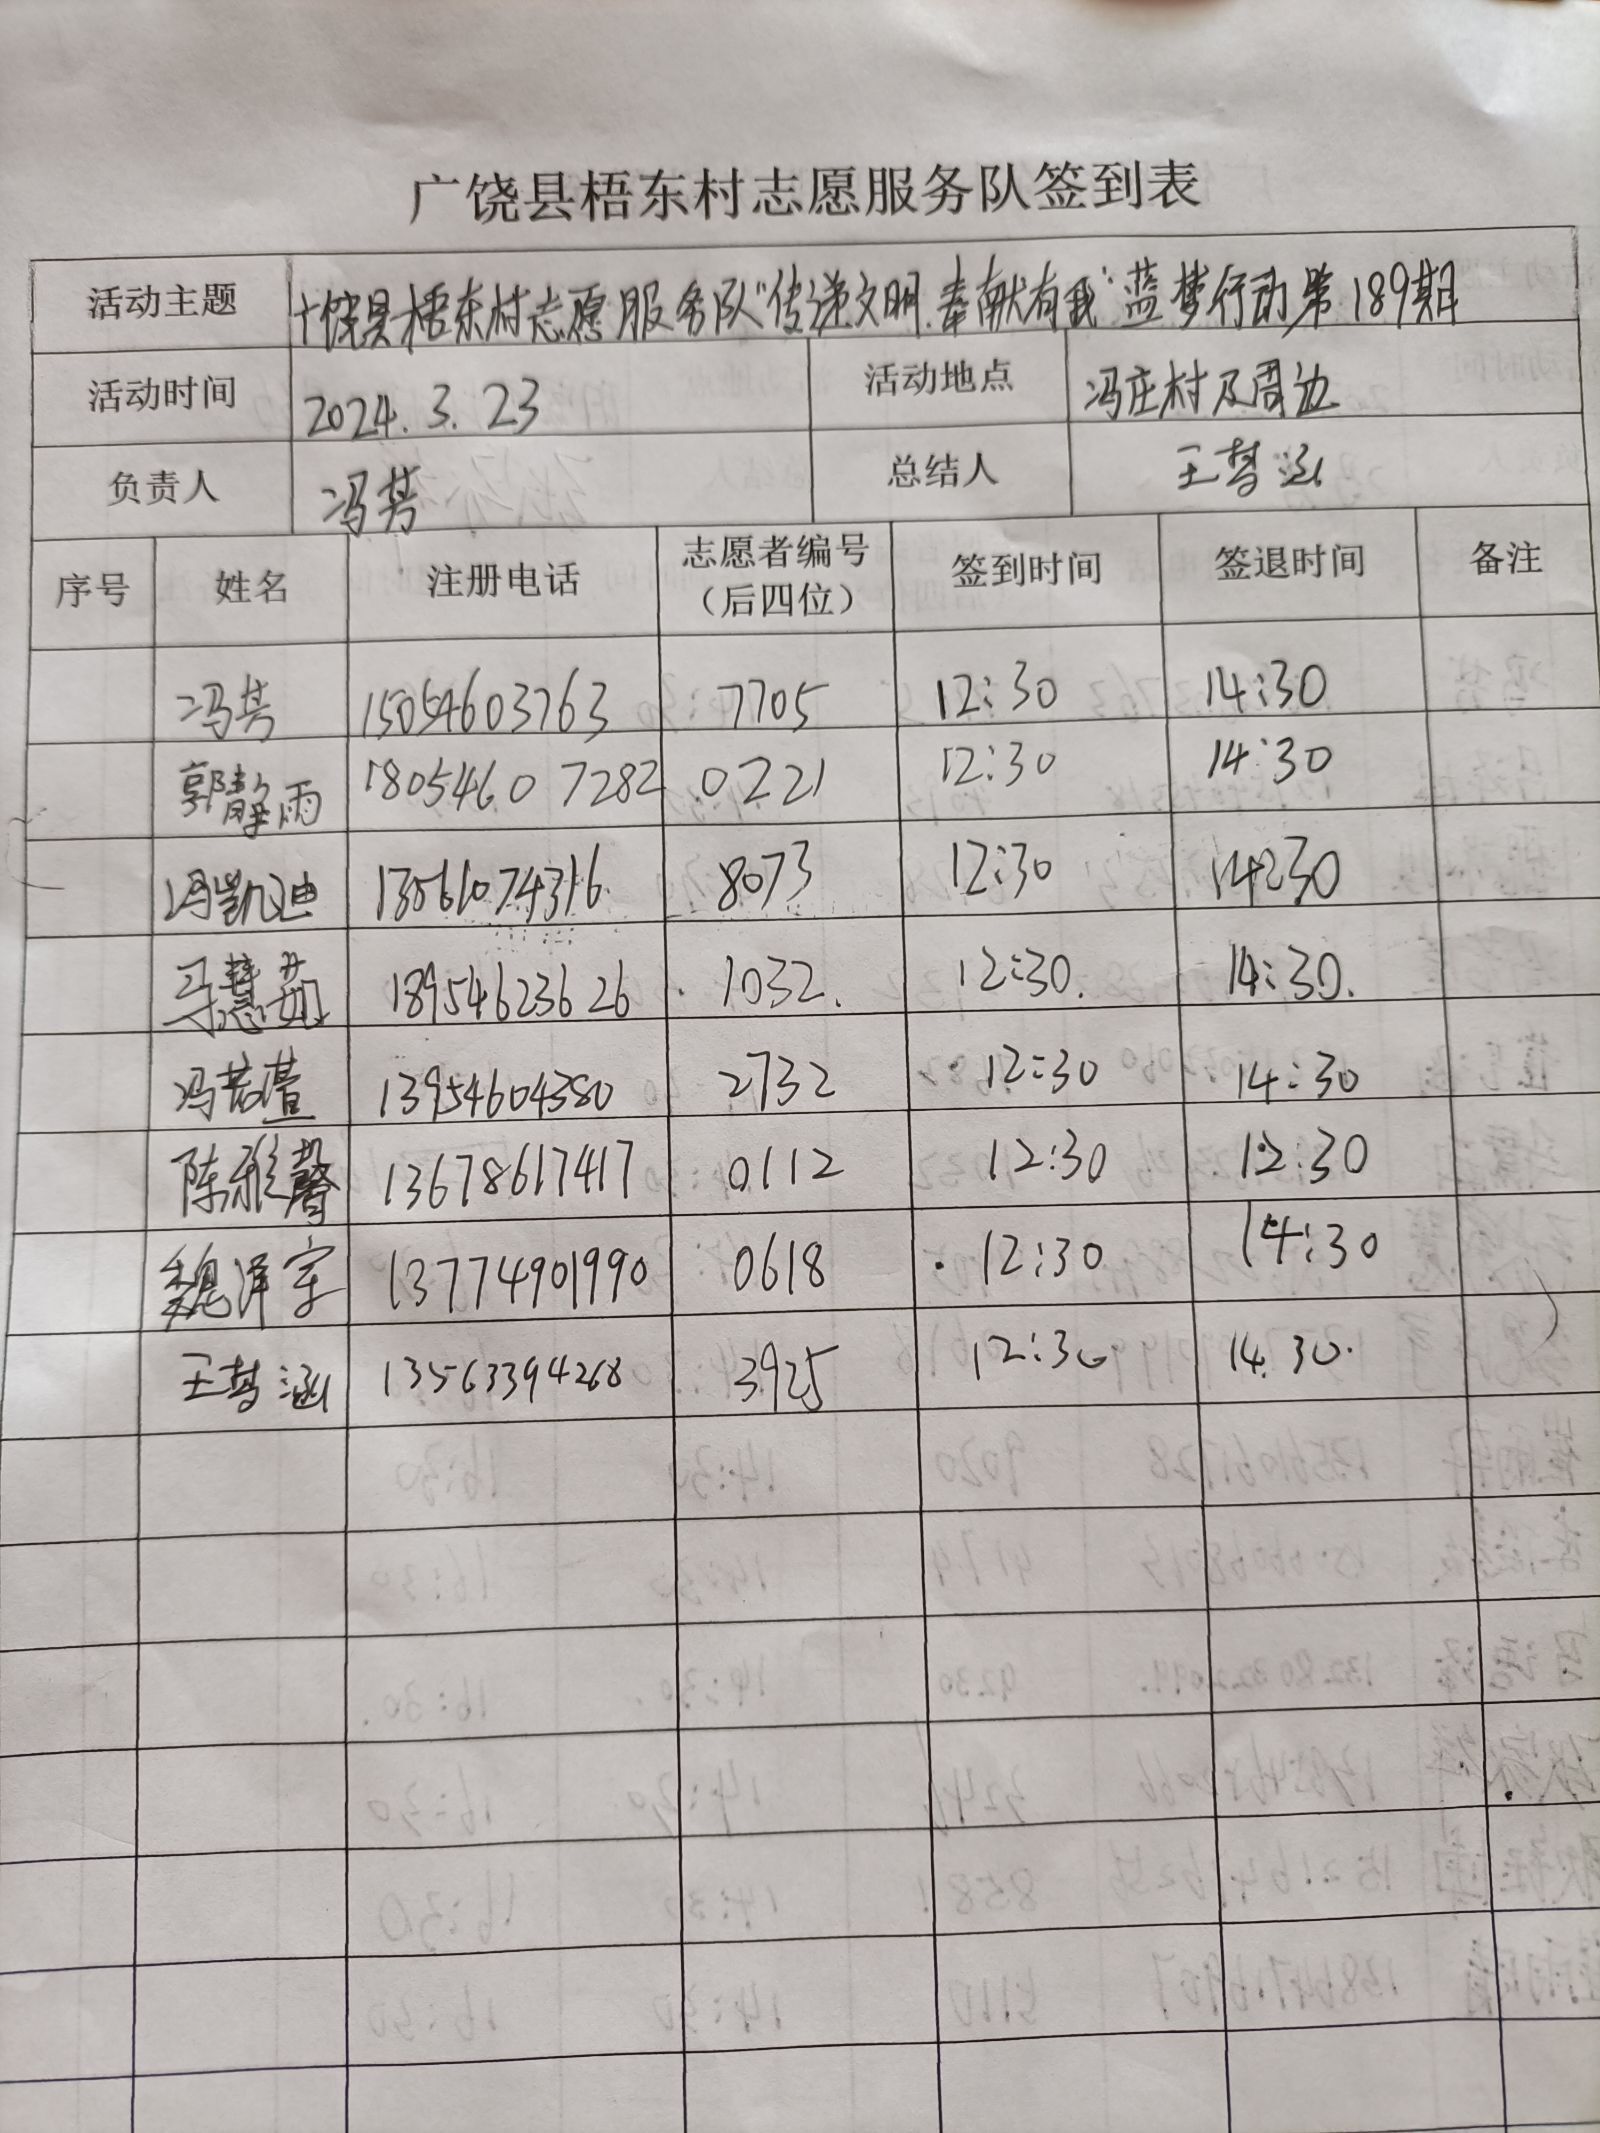 广饶县梧东村志愿服务队签到表
活动主题 广饶县梧东村志愿服务队"传递文明.奉献有我"蓝梦行动第189期
活动时间 2024.3.23 活动地点 冯庄村及周边
负责人 冯芳 总结人 王梦涵
序号 姓名 注册电话 志愿者编号（后四位） 签到时间 签退时间 备注
冯芳 15054603763 7705 12:30 14:30
郭静雨 18054607282 0221 12:30 14:30
冯凯迪 13561074316 8073 12:30 14:30
马慧茹 18954623626 1032. 12:30. 14:30.
冯若萱 13954604380 2732 12:30 14:30
陈雅馨 13678617417 0112 12:30 12:30
魏泽宇 13774901990 0618 12:30 14:30
王梦涵 13563394268 3925 12:30 14.30.